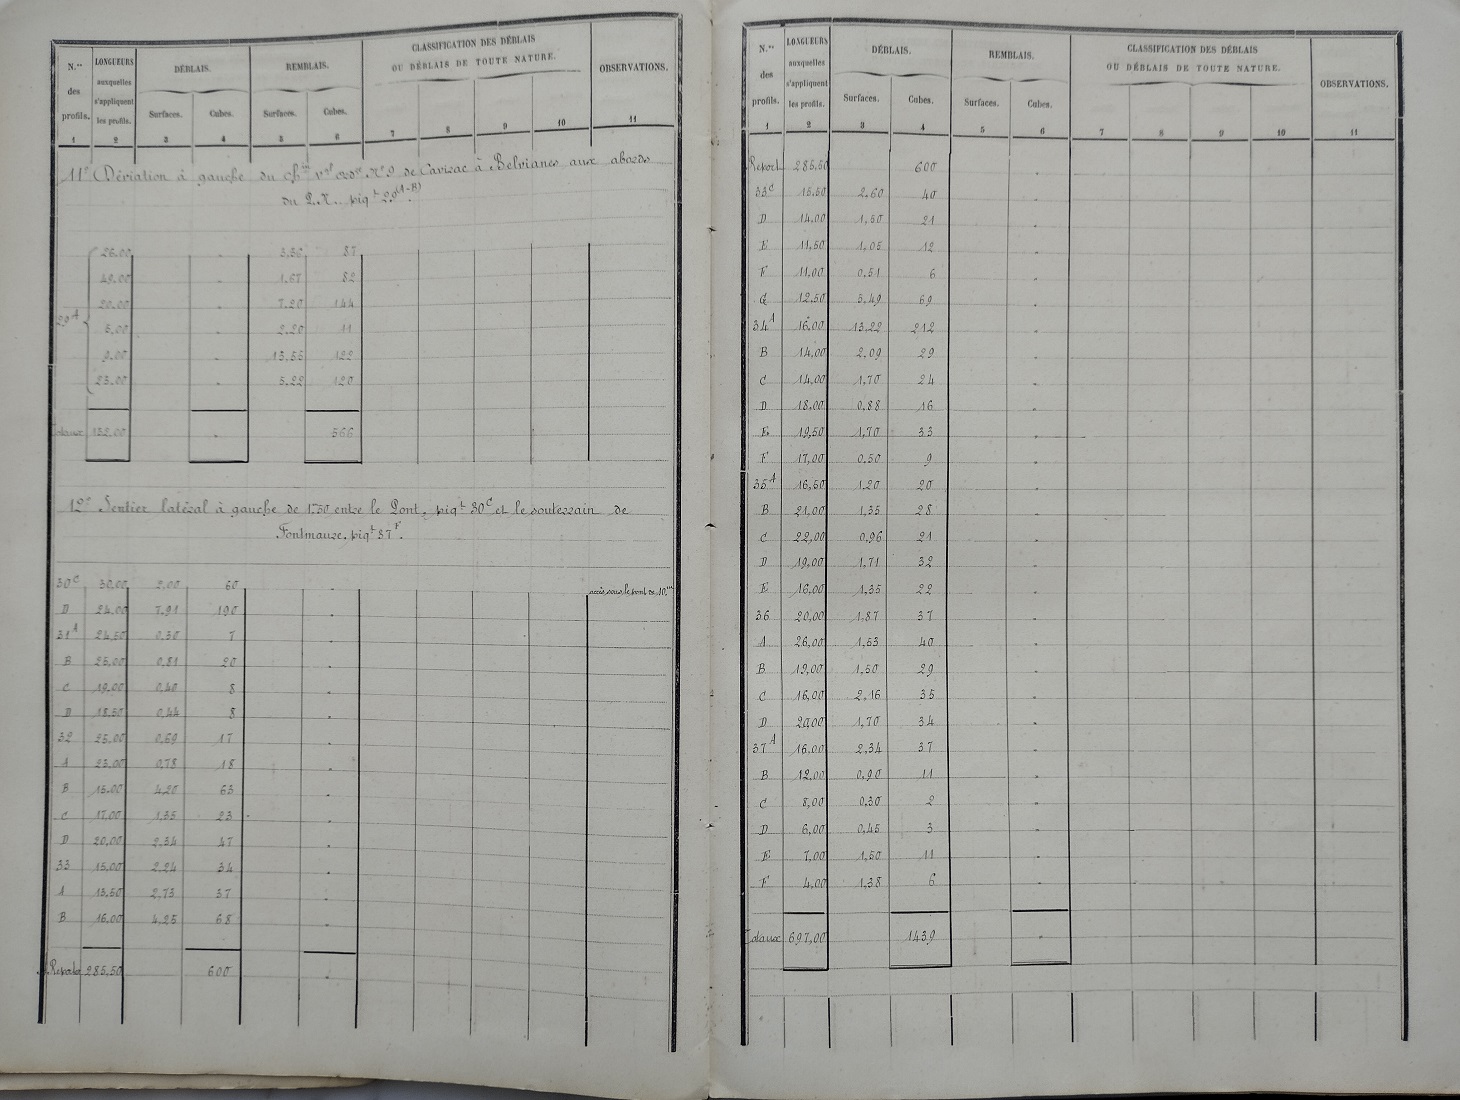 N.os des profils. | LONGUEURS auxquelles s'appliquent les profils. | DÉBLAIS. | REMBLAIS. | CLASSIFICATION DES DÉBLAIS OU DÉBLAIS DE TOUTE NATURE. | OBSERVATIONS.
Surfaces. | Cubes. | Surfaces. | Cubes.
1 | 2 | 3 | 4 | 5 | 6 | 7 | 8 | 9 | 10 | 11
11° Déviation à gauche du ch.in v.nal ord.re N° 9 de Cavirac à Belvianes aux abords
du P.N. piq.t 29(A-B)
26.00 | . | 3,36 | 87
49.00 | . | 1,67 | 82
20.00 | . | 7.20 | 144
29A | 5,00 | . | 2,20 | 11
9.00 | . | 13,55 | 122
23.00 | . | 5,22 | 120
Totaux | 132.00 | . | 566
12° Sentier latéral à gauche de 1m50 entre le Pont, piq.t 30C et le souterrain de
Fontmaure, piq.t 37F.
30C | 30.00 | 2,00 | 60 | . | accès sous le pont de 10.m
D | 24.00 | 7,91 | 190 | .
31A | 24,50 | 0,30 | 7 | .
B | 25,00 | 0,81 | 20 | .
C | 19.00 | 0,40 | 8 | .
D | 18.50 | 0,44 | 8 | .
32 | 25.00 | 0,69 | 17 | .
A | 23.00 | 0,78 | 18 | .
B | 15.00 | 4,20 | 63 | .
C | 17.00 | 1,35 | 23 | .
D | 20,00 | 2,34 | 47 | .
33 | 15,00 | 2,24 | 34 | .
A | 13,50 | 2,73 | 37 | .
B | 16,00 | 4,25 | 68 | .
A Reporter | 285,50 | 600 | .
N.os des profils. | LONGUEURS auxquelles s'appliquent les profils. | DÉBLAIS. | REMBLAIS. | CLASSIFICATION DES DÉBLAIS OU DÉBLAIS DE TOUTE NATURE. | OBSERVATIONS.
Surfaces. | Cubes. | Surfaces. | Cubes.
1 | 2 | 3 | 4 | 5 | 6 | 7 | 8 | 9 | 10 | 11
Report | 285.50 | 600 | .
33C | 15.50 | 2.60 | 40 | .
D | 14.00 | 1,50 | 21 | .
E | 11,50 | 1,05 | 12 | .
F | 11.00 | 0,51 | 6 | .
G | 12,50 | 5,49 | 69 | .
34A | 16.00 | 13,22 | 212 | .
B | 14,00 | 2,09 | 29 | .
C | 14,00 | 1,70 | 24 | .
D | 18.00 | 0,88 | 16 | .
E | 19,50 | 1,70 | 33 | .
F | 17,00 | 0,50 | 9 | .
35A | 16,50 | 1,20 | 20 | .
B | 21,00 | 1,35 | 28 | .
C | 22,00 | 0,96 | 21 | .
D | 19,00 | 1,71 | 32 | .
E | 16,00 | 1,35 | 22 | .
36 | 20,00 | 1,87 | 37 | .
A | 26,00 | 1,53 | 40 | .
B | 19,00 | 1,50 | 29 | .
C | 16,00 | 2,16 | 35 | .
D | 20,00 | 1,70 | 34 | .
37A | 16.00 | 2,34 | 37 | .
B | 12.00 | 0,90 | 11 | .
C | 8,00 | 0,30 | 2 | .
D | 6,00 | 0,45 | 3 | .
E | 7,00 | 1,50 | 11 | .
F | 4,00 | 1,38 | 6 | .
Totaux | 697,00 | 1439 | .